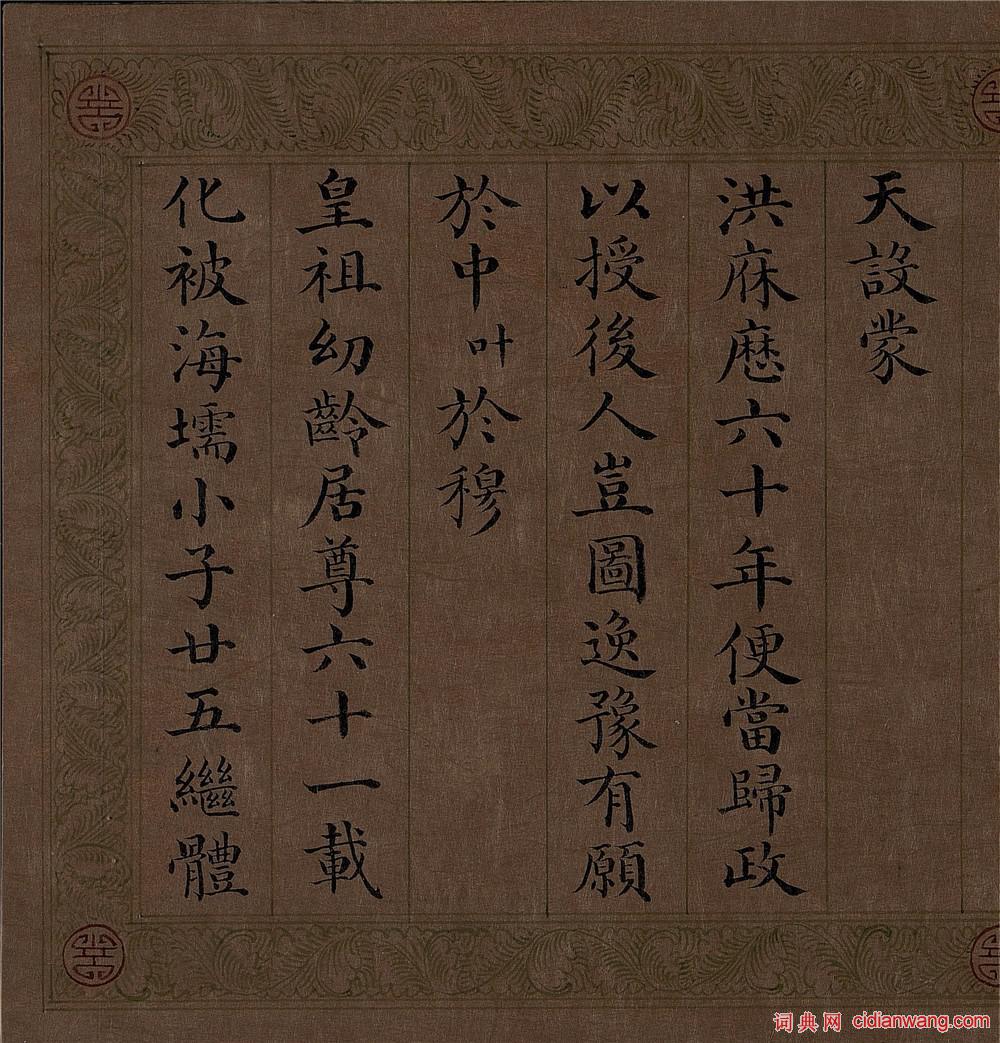 天設蒙
洪庥歷六十年便當歸政
以授後人豈圖逸豫有願
於中叶於穆
皇祖幼齡居尊六十一載
化被海壖小子廿五繼體
词典网 cidianwang.com